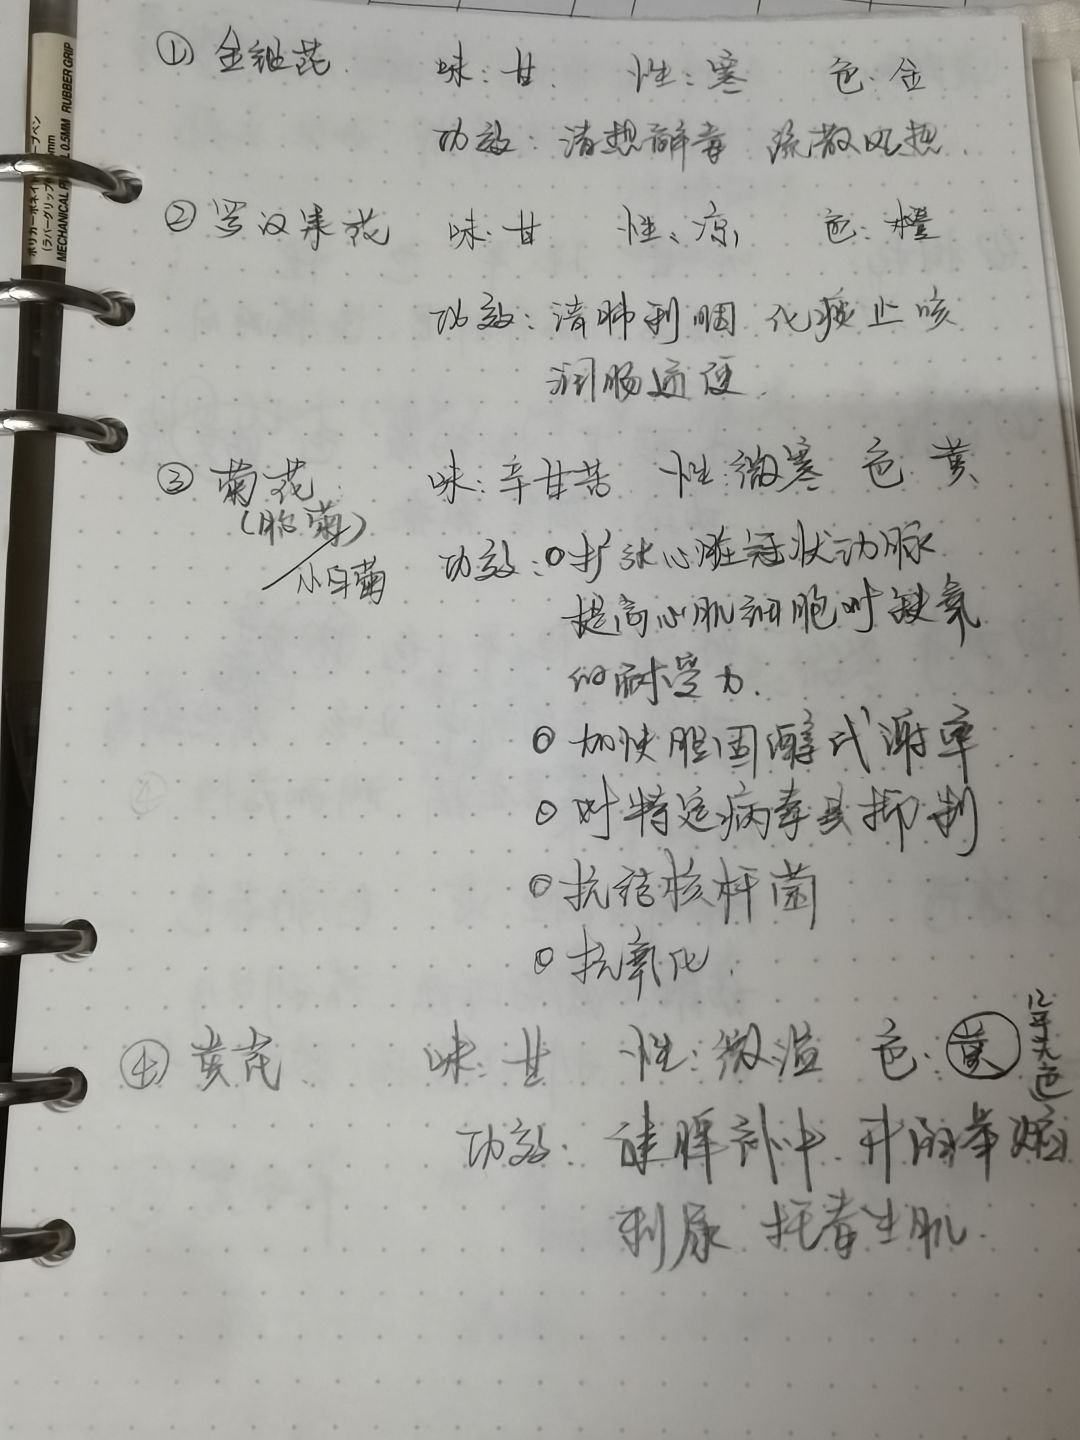 ① 金银花 味:甘 性:寒 色:金
功效:清热解毒 疏散风热
② 罗汉果花 味:甘 性:凉 色:橙
功效:清肺利咽 化痰止咳
润肠通便
③ 菊花 味:辛甘苦 性微寒 色 黄
(胎菊)
小白菊
功效:扩张心脏冠状动脉
提高心肌细胞对缺氧
的耐受力.
加快胆固醇代谢率
对特定病毒具抑制
抗结核杆菌
抗氧化.
④ 黄芪 味:甘 性:微温 色:黄
功效: 健脾补中 升阳举
利尿 托毒生肌
ポリカーボネイト
(ラバーグリップ
MECHANICAL 0.5MM RUBBER GRIP